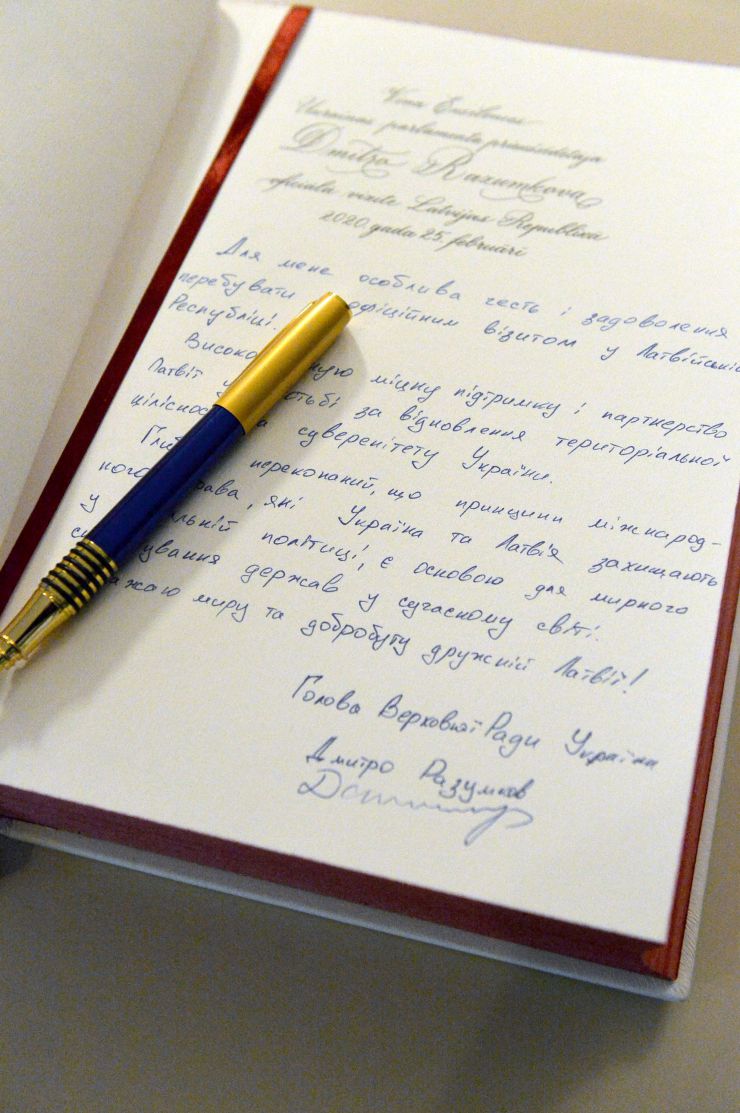 Viņa Ekselences
Ukrainas parlamenta priekšsēdētāja
Dmitro Razumkova
oficiālā vizīte Latvijas Republikā
2020. gada 25. februārī
Для мене особлива честь і задоволення
перебувати офіційним візитом у Латвійській
Республіці.
Високо міцну підтримку і партнерство
Латвії у за відновлення територіальної
суверенітету України.
переконаний, що принципи міжнарод-
ного права, які Україна та Латвія захищають
у політиці, є основою для мирного
держав у сучасному світі.
миру та добробуту дружній Латвії!
Голова Верховної Ради Україна
Дмитро Разумков